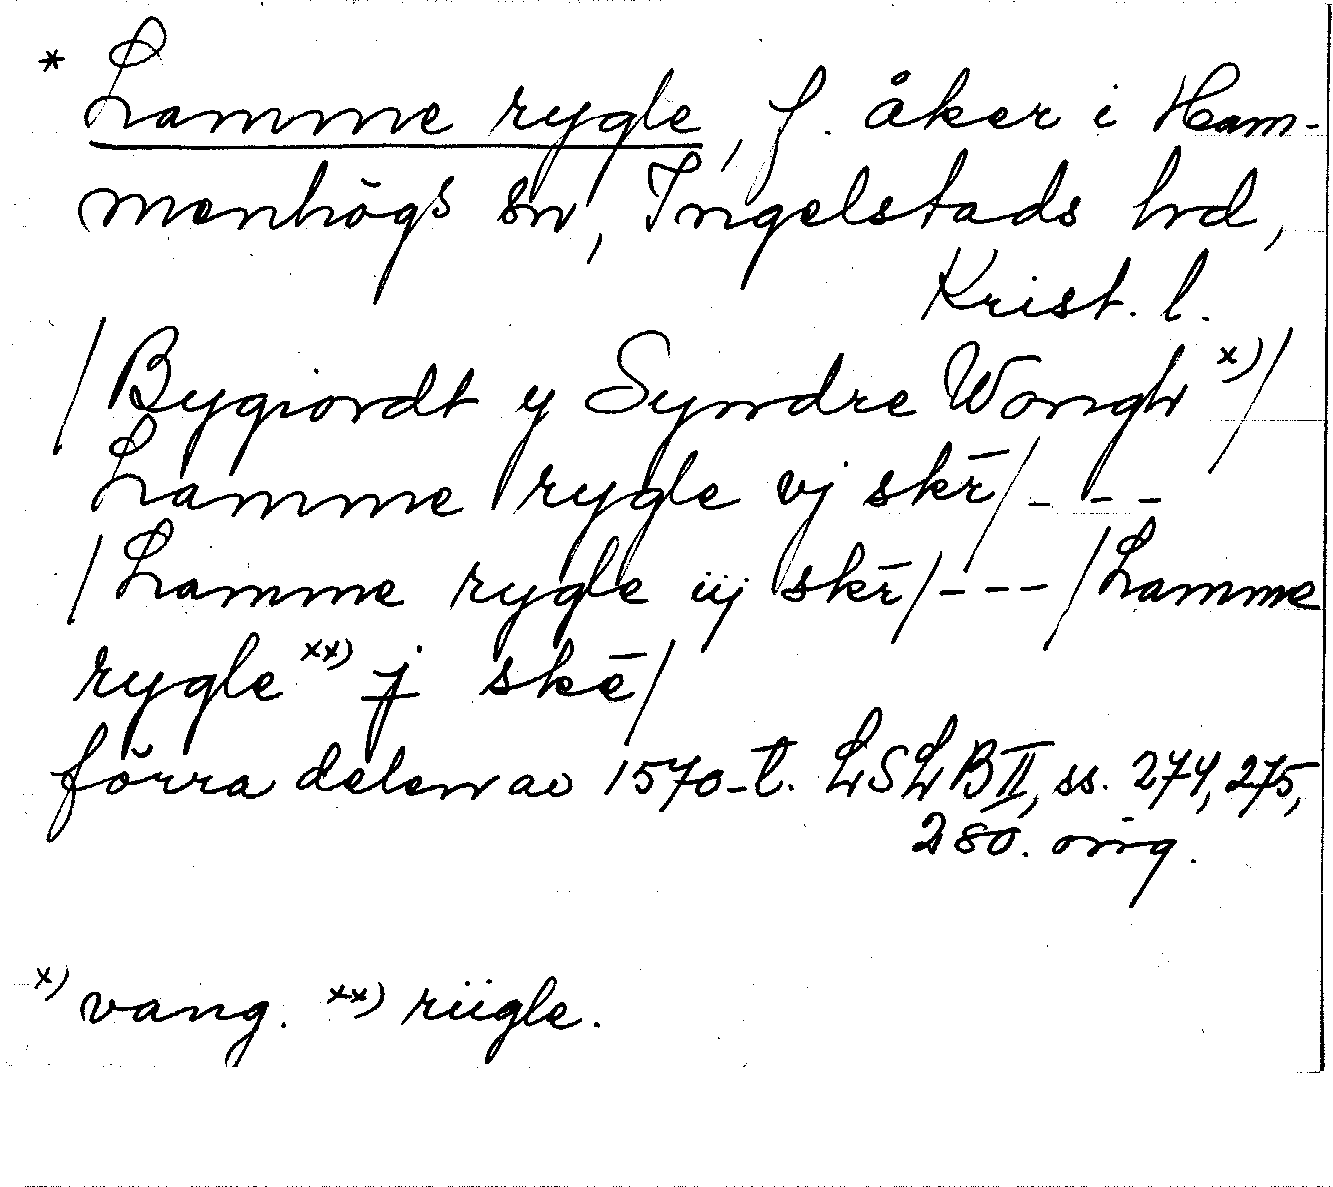 * Lamme rygle, f. åker i Ham-
menhögs sn, Ingelstads hd,
Krist. l.
/Bygiordt y Syndre Wongh x)/
Lamme rygle vj skē/ - - -
/Lamme rygle iij skē/ - - - /Lamme
rygle xx) j skē/
förra delen av 1570-t. LSLB II, ss. 274, 275,
280. orig.
x) vang. xx) riigle.